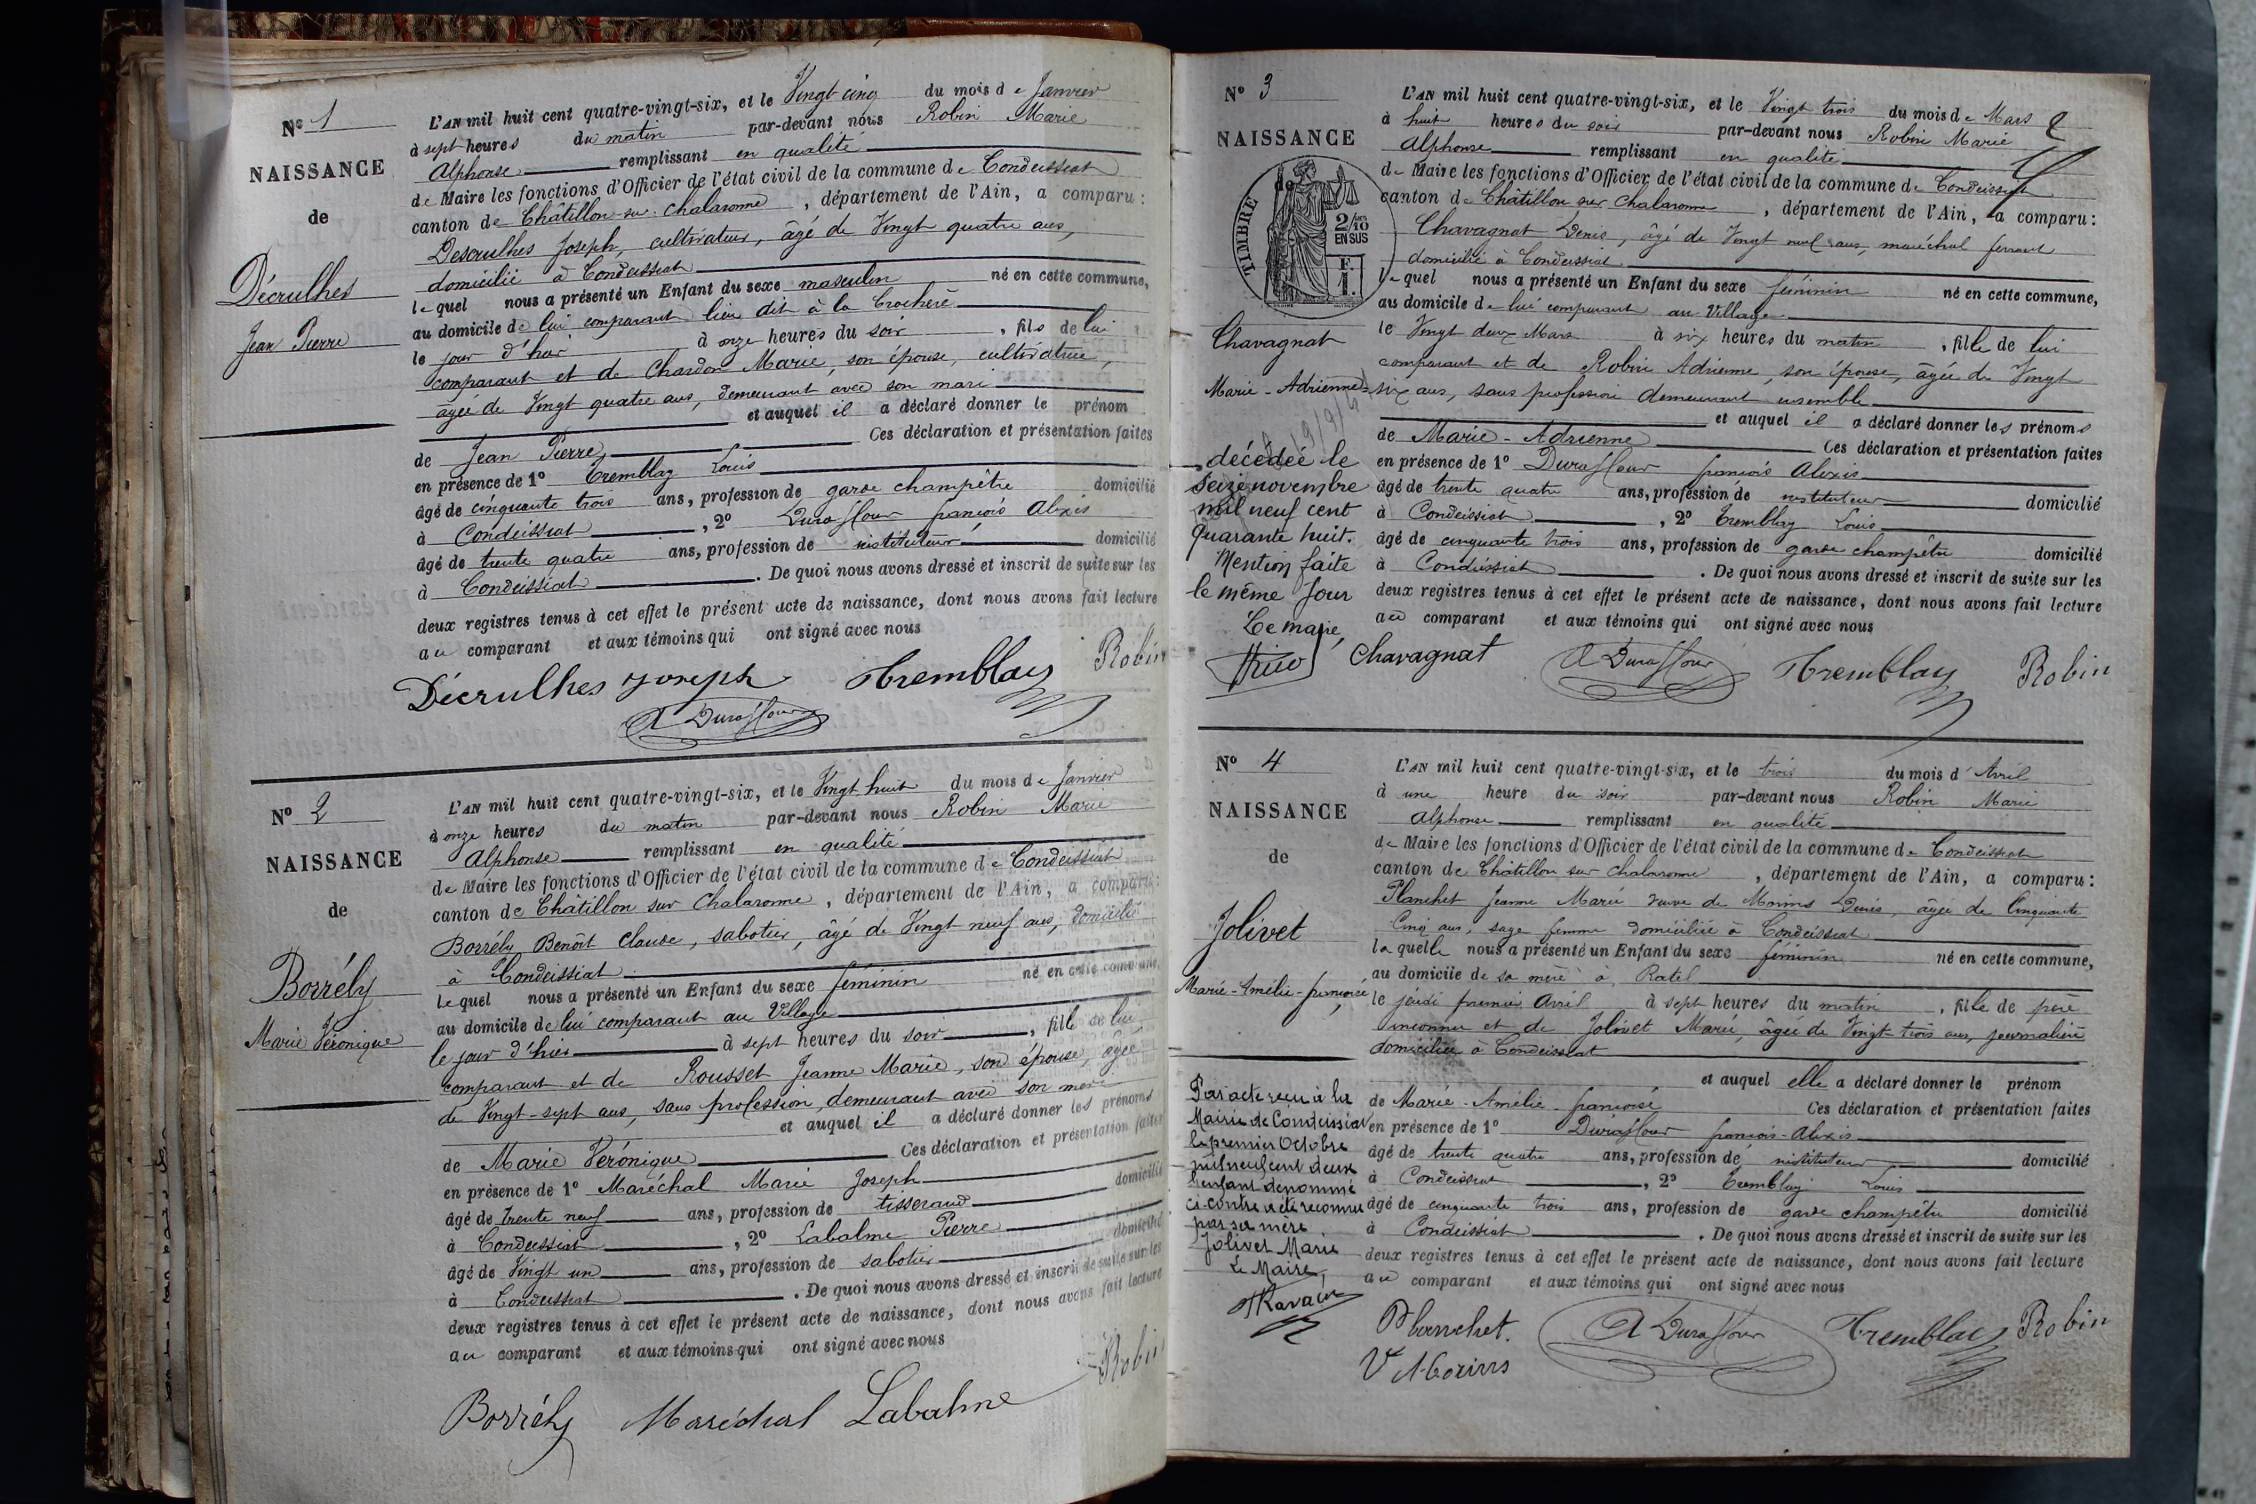 N° 1
NAISSANCE
de
Décrulhes
Jean Pierre
L'AN mil huit cent quatre-vingt-six, et le Vingt-cinq du mois de Janvier
à sept heures du matin par-devant nous Robin Marie
Alphonse remplissant en qualité
de Maire les fonctions d'Officier de l'état civil de la commune de Condeissiat
canton de Châtillon-sur-Chalaronne, département de l'Ain, a comparu :
Descrulhes Joseph, cultivateur, âgé de Vingt quatre ans,
domicilié à Condeissiat
lequel nous a présenté un Enfant du sexe masculin né en cette commune,
au domicile de lui comparant lieu dit à la
le jour d'hier à onze heures du soir, fils de lui
comparant et de Chardon Marie, son épouse, cultivatrice,
âgée de Vingt quatre ans, demeurant avec son mari
et auquel il a déclaré donner le prénom
de Jean Pierre, Ces déclaration et présentation faites
en présence de 1° Tremblay Louis
âgé de cinquante trois ans, profession de garde champêtre domicilié
à Condeissiat, 2° Duraflour françois Alexis
âgé de trente quatre ans, profession de instituteur domicilié
à Condeissiat. De quoi nous avons dressé et inscrit de suite sur les
deux registres tenus à cet effet le présent acte de naissance, dont nous avons fait lecture
au comparant et aux témoins qui ont signé avec nous
Décrulhes Joseph Tremblay Robin
A Duraflour
N° 2
NAISSANCE
de
Borrély
Marie Véronique
L'AN mil huit cent quatre-vingt-six, et le Vingt huit du mois de Janvier
à onze heures du matin par-devant nous Robin Marie
Alphonse remplissant en qualité
de Maire les fonctions d'Officier de l'état civil de la commune de Condeissiat
canton de Châtillon sur Chalaronne, département de l'Ain, a comparu :
Borrély Benoît Claude, sabotier, âgé de Vingt neuf ans, domicilié
à Condeissiat
lequel nous a présenté un Enfant du sexe féminin né en cette commune,
au domicile de lui comparant au Village
le jour d'hier à sept heures du soir, fille de lui
comparant et de Rousset Jeanne Marie, son épouse, âgée
de Vingt-sept ans, sans profession, demeurant avec son mari
et auquel il a déclaré donner les prénoms
de Marie Véronique Ces déclaration et présentation faites
en présence de 1° Maréchal Marie Joseph
âgé de trente neuf ans, profession de tisserand domicilié
à Condeissiat, 2° Labalme Pierre
âgé de Vingt un ans, profession de sabotier domicilié
à Condeissiat. De quoi nous avons dressé et inscrit de suite sur les
deux registres tenus à cet effet le présent acte de naissance, dont nous avons fait lecture
au comparant et aux témoins qui ont signé avec nous
Borrély Maréchal Labalme Robin
N° 3
NAISSANCE
de
TIMBRE
2/10
EN SUS
F.
1.
Chavagnat
Marie-Adrienne
décédée le
seize novembre
mil neuf cent
quarante huit.
Mention faite
le même jour
Le maire,
L'AN mil huit cent quatre-vingt-six, et le Vingt trois du mois de Mars
à huit heures du soir par-devant nous Robin Marie
Alphonse remplissant en qualité
de Maire les fonctions d'Officier de l'état civil de la commune de Condeissiat
canton de Châtillon sur Chalaronne, département de l'Ain, a comparu :
Chavagnat Denis, âgé de Vingt neuf ans, maréchal ferrant
domicilié à Condeissiat
lequel nous a présenté un Enfant du sexe féminin né en cette commune,
au domicile de lui comparant au Village
le Vingt deux Mars à six heures du matin, fille de lui
comparant et de Robin Adrienne, son épouse, âgée de Vingt
six ans, sans profession demeurant ensemble
et auquel il a déclaré donner les prénoms
de Marie-Adrienne Ces déclaration et présentation faites
en présence de 1° Duraflour françois Alexis
âgé de trente quatre ans, profession de instituteur domicilié
à Condeissiat, 2° Tremblay Louis
âgé de cinquante trois ans, profession de garde champêtre domicilié
à Condeissiat. De quoi nous avons dressé et inscrit de suite sur les
deux registres tenus à cet effet le présent acte de naissance, dont nous avons fait lecture
au comparant et aux témoins qui ont signé avec nous
Chavagnat A Duraflour Tremblay Robin
N° 4
NAISSANCE
de
Jolivet
Marie-Amélie-françoise
L'AN mil huit cent quatre-vingt-six, et le trois du mois d'Avril
à une heure du soir par-devant nous Robin Marie
Alphonse remplissant en qualité
de Maire les fonctions d'Officier de l'état civil de la commune de Condeissiat
canton de Châtillon sur Chalaronne, département de l'Ain, a comparu :
Planchet Jeanne Marie veuve de Morins Denis, âgée de Cinquante
Cinq ans, sage femme domiciliée à Condeissiat
laquelle nous a présenté un Enfant du sexe féminin né en cette commune,
au domicile de sa mère à Ratel
le jeudi premier Avril à sept heures du matin, fille de père
inconnu et de Jolivet Marie, âgée de Vingt trois ans, journalière
domiciliée à Condeissiat
et auquel elle a déclaré donner le prénom
de Marie-Amélie-françoise Ces déclaration et présentation faites
en présence de 1° Duraflour françois-Alexis
âgé de trente quatre ans, profession de instituteur domicilié
à Condeissiat, 2° Tremblay Louis
âgé de cinquante trois ans, profession de garde champêtre domicilié
à Condeissiat. De quoi nous avons dressé et inscrit de suite sur les
deux registres tenus à cet effet le présent acte de naissance, dont nous avons fait lecture
au comparant et aux témoins qui ont signé avec nous
Par acte reçu à la
Mairie de Condeissiat
le premier Octobre
mil neuf cent deux
l'enfant dénommé
ci-contre a été reconnu
par sa mère
Jolivet Marie
Le Maire,
Planchet. A Duraflour Tremblay Robin
V Morins